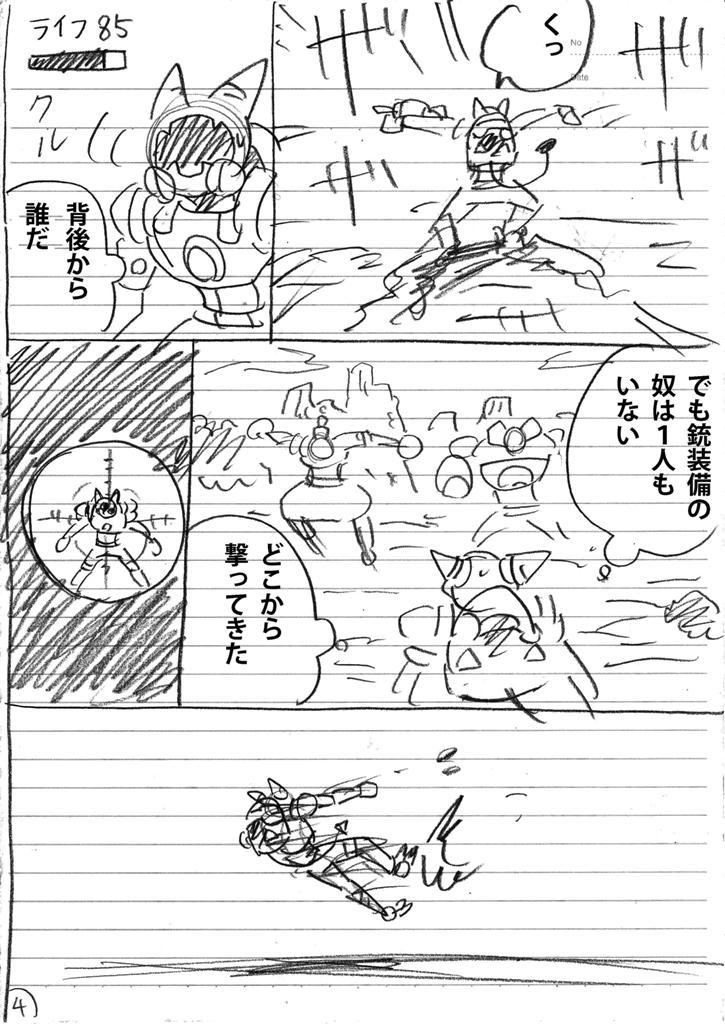 くっ
ザザ
ザザ
ザザ
ザザ
ライフ 85
クル
背後から
誰だ
でも銃装備の
奴は1人も
いない
どこから
撃ってきた
No
Date
4